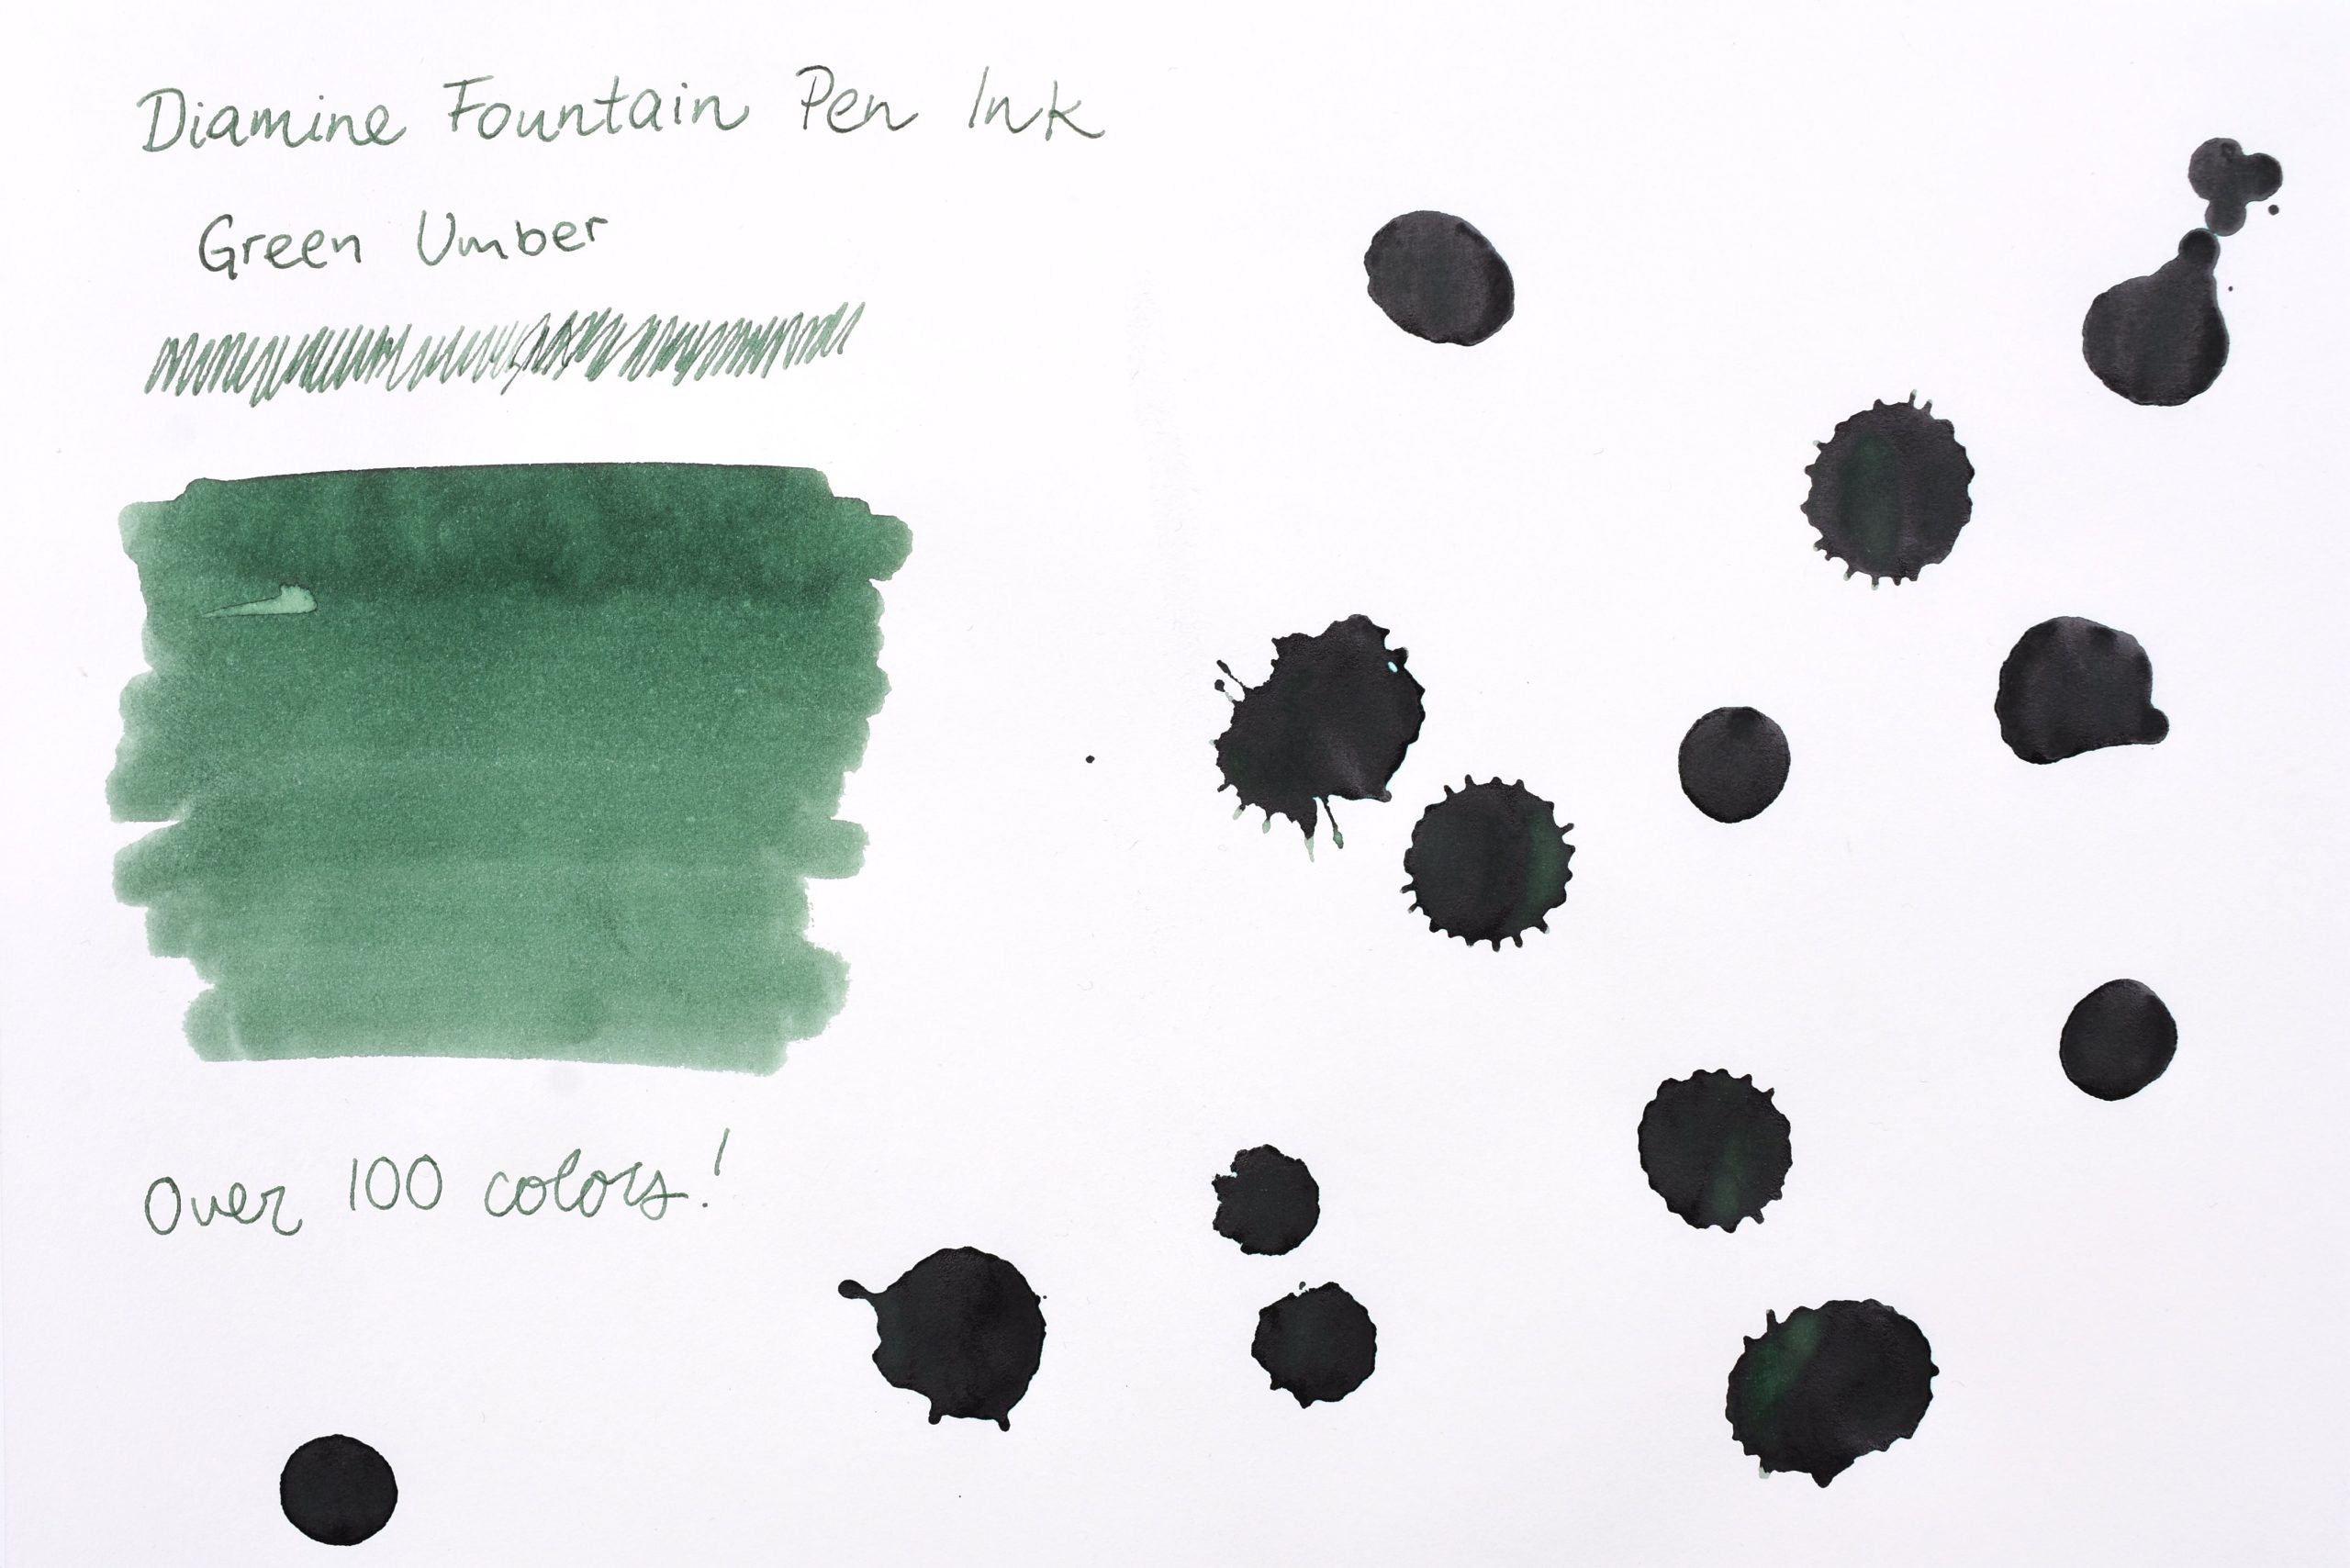 Diamine Fountain Pen Ink
Green Umber
Over 100 colors!